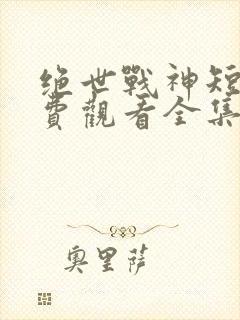 绝世戰神短
費觀看全集
奧里薩